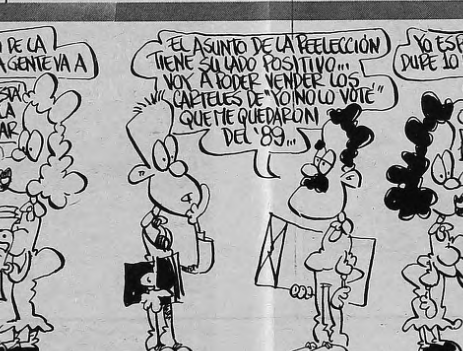 O DE LA
A GENTE VA A
ESTÁ
LA
AR
EL ASUNTO DE LA REELECCIÓN
TIENE SU LADO POSITIVO...
VOY A PODER VENDER LOS
CARTELES DE "YO NO LO VOTÉ"
QUE ME QUEDARON
DEL '89...
YO ESP
DURE 10